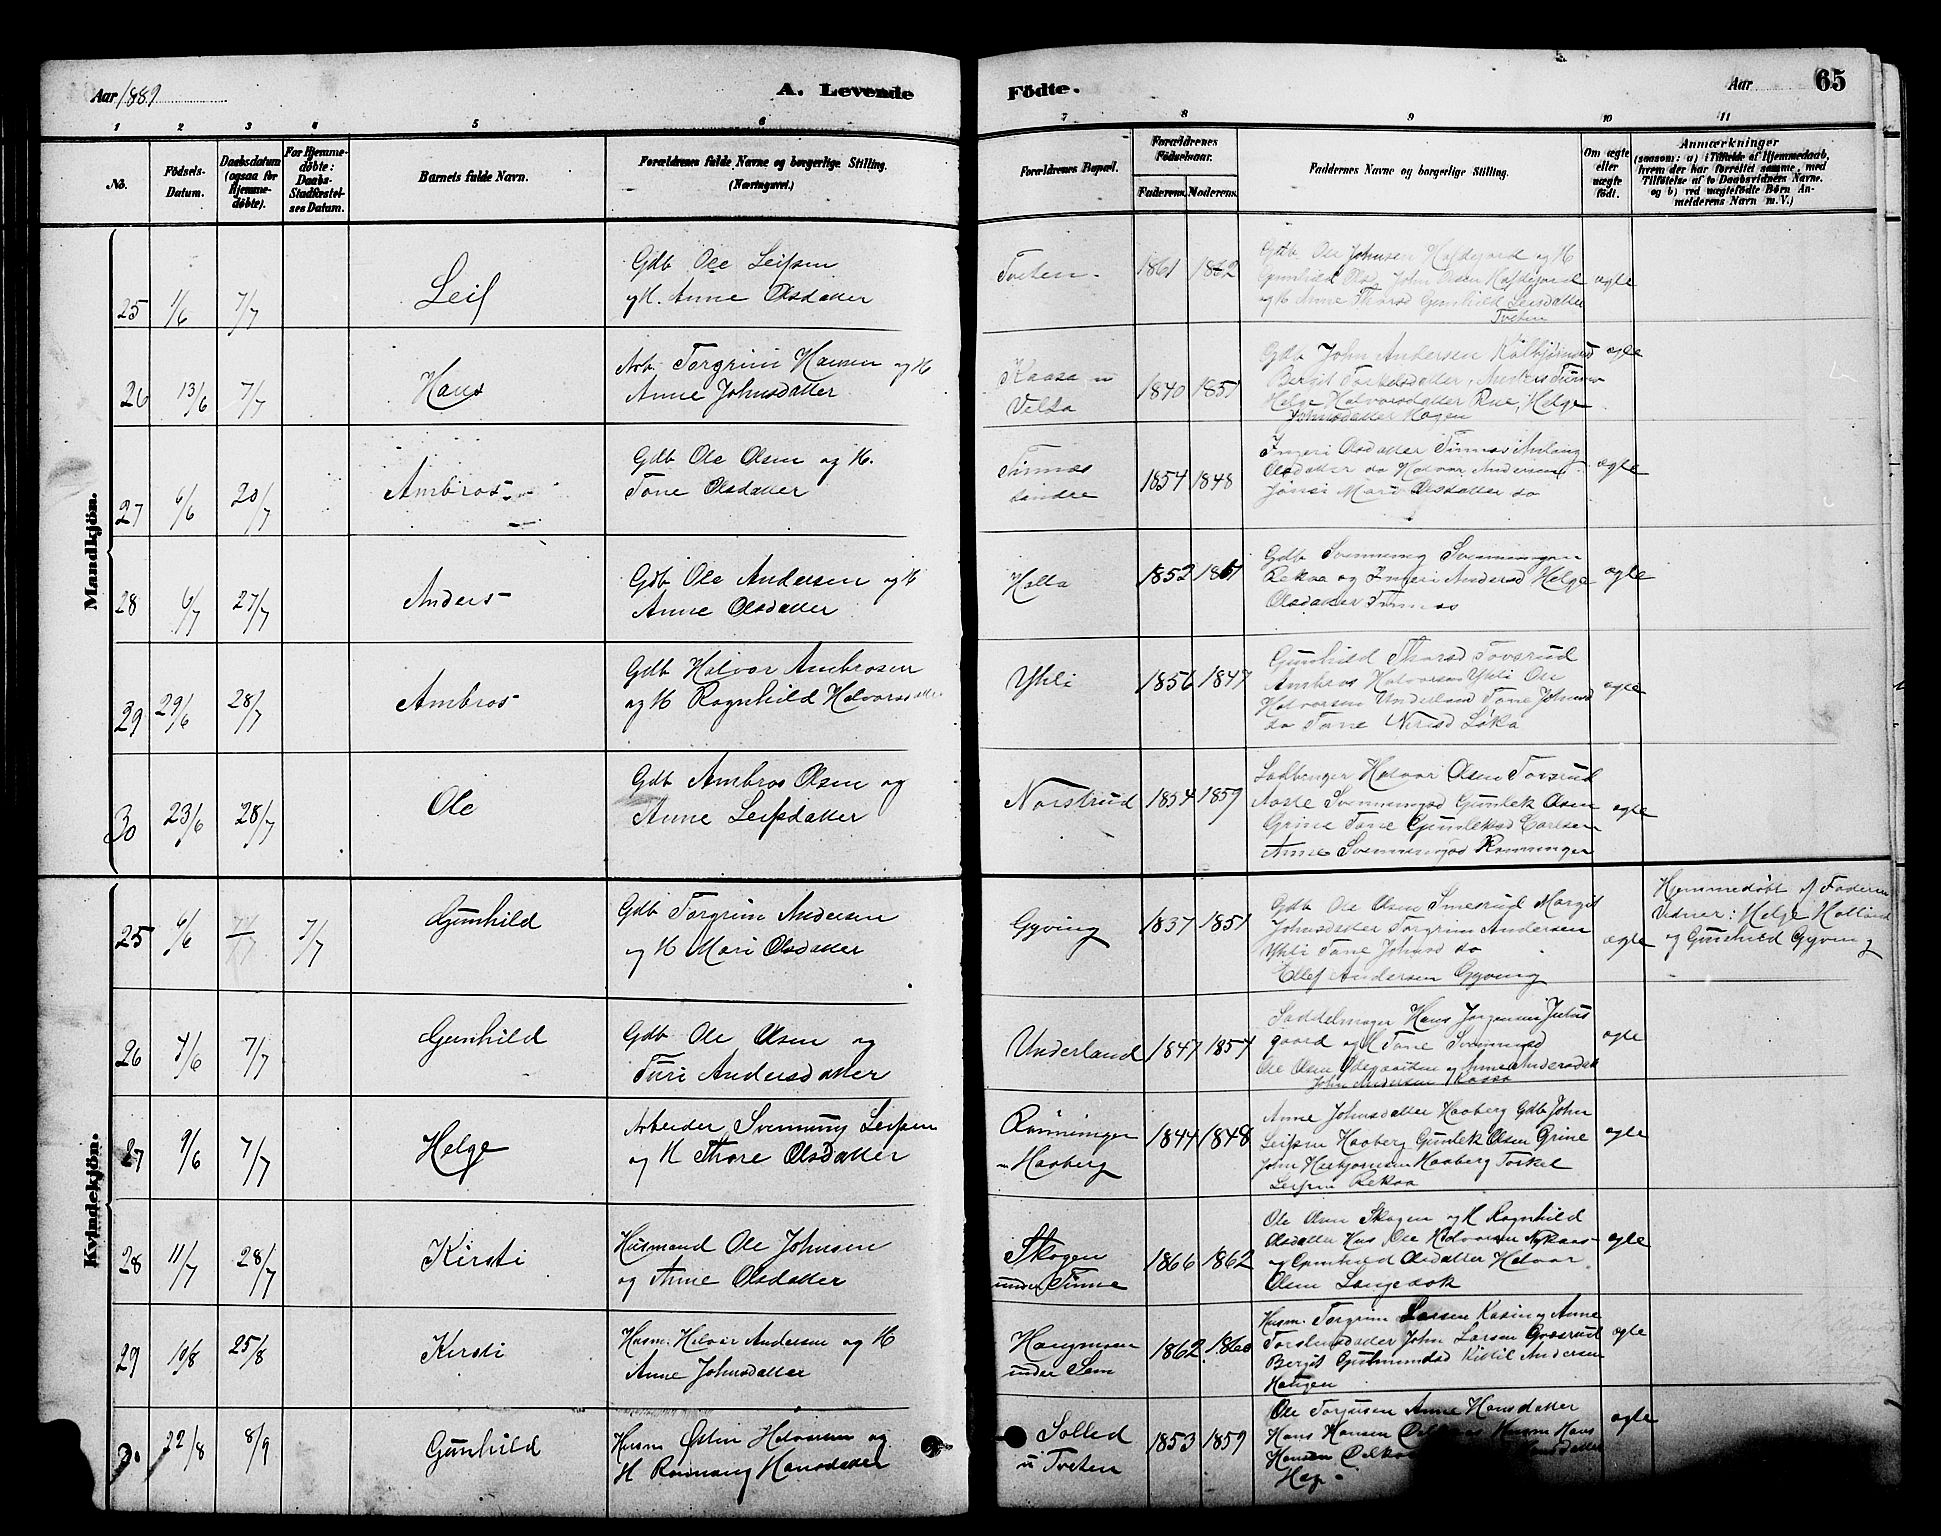 Aar 1889
A. Levende
Födte.
Aar
65
1 2 3 4 5 6 7 8 9 10 11
No.
Födsels-
Datum.
Daabsdatum
(ogsaa for
Hjemme-
döbte).
For Hjemme-
döbte:
Daabs-
Stadfæstel-
ses Datum.
Barnets fulde Navn.
Forældrenes fulde Navne og borgerlige Stilling.
(Næringsvei.)
Forældrenes Bopæl.
Forældrenes
Födselsaar.
Faderens. Moderens.
Faddernes Navne og borgerlige Stilling.
Om ægte
eller
uægte
födt.
Anmærkninger
(saasom: a) i Tilfælde af Hjemmedaab,
hvem der har forrettet samme, med
Tilföielse af to Daabsvidners Navne,
og b) ved uægtefödte Börn An-
melderens Navn m. V.)
Mandkjön.
25 1/6 7/7 Leif
Gdb Ole Leifsen
og H. Anne Olsdatter
Tveten
1861
Gdb Ole Johnsen Haldegord og H
Gunhild Olsd John Olsen
og H Anne Thorsd Gunhild Leifsdatter
Tveten
ægte
26 13/6 7/7 Hans
Arb. Torgrim Hansen og H
Anne Johnsdatter
Kaasa u
Velta
1840 1851
Gdb John Andersen
Bergit Torkelsdatter, Anders
Helge Halvorsdatter Rue, Helge
Johnsdatter Hagen
ægte
27 6/6 20/7 Ambros
Gdb Ole Olsen og H.
Tone Olsdatter
Tinnæs
søndre
1854 1848
Ingeri Olsdatter Tinnæs
Olsdatter do Halvor Andersen
Mari Olsdatter do
ægte
28 6/7 27/7 Anders
Gdb Ole Andersen og H
Anne Olsdatter
Holta
1852 1861
Gdb Svennung Svennungsen
Reksa og Ingeri Andersd Helge
Olsdatter Tinnæs
ægte
29 29/6 28/7 Ambros
Gdb Halvor Ambrosen
og H Ragnhild Halvorsdatter
Ytli
1856 1847
Gunhild Thorsd Tovsrud
Ambros Halvorsen Ytli Ole
Halvorsen Underland Tone Johnsd
do Tone Nirisd Løka
ægte
30 23/6 28/7 Ole
Gdb Ambros Olsen og
Anne Leifsdatter
Norstrud
1854 1859
Ladbruger Halvor Olsen Tovsrud
Aaste Svennungsd Gunlek Olsen
Grine Tone Gunleksd Carlsen
Anne Svennungsd Rønningen
ægte
Kvindekjön.
25 6/6 7/7 Gunhild
Gdb Torgrim Andersen
og H Mari Olsdatter
Gyving
1837 1851
Gdb Ole Olsen Smesrud Margit
Johnsdatter Torgrim Andersen
Ytli Tone Johnsd do
Ellef Andersen Gyving
ægte
Hjemmedøbt af Faderen
Vidner: Helge
og Gunhild Gyving
26 4/6 7/7 Gunhild
Gdb Ole Olsen og
Turi Andersdatter
Underland
1847 1857
Saddelmager Hans Jørgensen Juliusgaard
og H Tone Svennungsd
Ole Olsen Ødegaarden og Anne Andersdat
John Andersen Kaasa
ægte
27 9/6 7/7 Helge
Arbeider Svennung Leifsen
og H Thore Olsdatter
Rønningen
u Haaberg
1844 1848
Anne Johnsdatter Haaberg Gdb John
Leifsen Haaberg Gunlek Olsen Grine
John Herbjørnsen Haaberg Torkel
Leifsen Reksa
ægte
28 11/7 28/7 Kirsti
Husmand Ole Johnsen
og Anne Olsdatter
Skogen
under Tinne
1866 1862
Ole Olsen Skogen og H Ragnhild
Olsdatter Hus Ole Halvorsen Nykaas
og Gunhild Olsdatter Halvor
Olsen Langedok
ægte
29 10/8 25/8 Kirsti
Husm. Halvor Andersen og H
Anne Johnsdatter
Haugmoen
under Sem
1862 1860
Husm. Torgrim Larsen Kasin og Anne
Torsteinsdatter John Larsen Graasrud
Bergit Gudmundsd Kittil Andersen
Haugen
ægte
30 22/8 8/9 Gunhild
Husm Østen Halvorsen og
H Rønnaug Hansdatter
Solled
u Tveten
1853 1859
Ole Torjusen Anne Hansdatter
Hans Hansen Husm Hans
Hansen
ægte